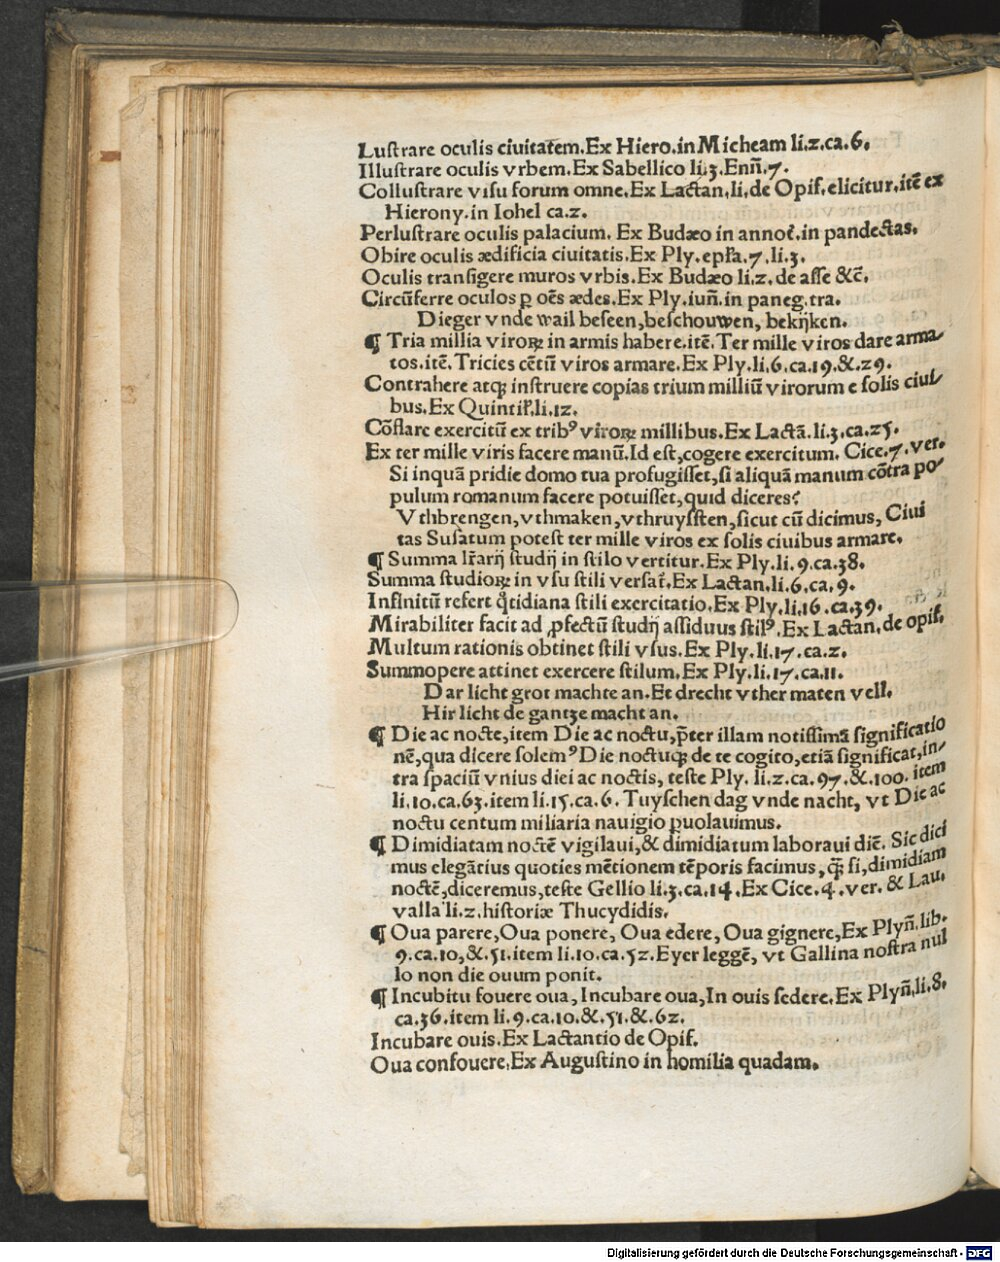 Luſtrare oculis ciuitatem.Ex Hiero.in Micheam li.2.ca.6.
Illuſtrare oculis vrbem.Ex Sabellico li.3.Enn̄.7.
Colluſtrare viſu forum omne.Ex Lactan.li.de Opif.elicitur.itē ex
Hierony.in Iohel ca.2.
Perluſtrare oculis palacium. Ex Budæo in annot̄.in pandectas.
Obire oculis ædificia ciuitatis.Ex Ply.epr̄a.7.li.3.
Oculis tranſigere muros vrbis.Ex Budæo li.2.de aſſe &c̄.
Circūferre oculos ꝑ oēs ædes.Ex Ply.iun̄.in paneg.tra.
Dieger vnde wail beſeen,beſchouwen, bekijken.
¶ Tria millia viroꝝ in armis habere.itē.Ter mille viros dare arma-
tos.itē.Tricies cētū viros armare.Ex Ply.li.6.ca.19.&.29.
Contrahere atqꝫ inſtruere copias trium milliū virorum e ſolis ciui-
bus.Ex Quintil̄.li.12.
Cōflare exercitū ex tribꝰ viroꝝ millibus.Ex Lactā.li.3.ca.25.
Ex ter mille viris facere manū.Id eſt,cogere exercitum. Cice.7.ver.
Si inquā pridie domo tua profugiſſet,ſi aliquā manum cōtra po-
pulum romanum facere potuiſſet,quid diceres?
Vthbrengen,vthmaken,vthruyſſten,ſicut cū dicimus, Ciui
tas Suſatum poteſt ter mille viros ex ſolis ciuibus armare.
¶ Summa lr̄arij ſtudij in ſtilo vertitur.Ex Ply.li.9.ca.38.
Summa ſtudioꝝ in vſu ſtili verſat̄.Ex Lactan.li.6.ca.9.
Infinitū refert q̄tidiana ſtili exercitatio.Ex Ply.li.16.ca.39.
Mirabiliter facit ad ꝓfectū ſtudij aſſiduus ſtilꝰ.Ex Lactan.de opif.
Multum rationis obtinet ſtili vſus.Ex Ply.li.17.ca.2.
Summopere attinet exercere ſtilum.Ex Ply.li.17.ca.11.
Dar licht grot machte an.Et drecht vther maten vell.
Hir licht de gantze macht an.
¶ Die ac nocte,item Die ac noctu,p̄ter illam notiſſimā ſignificatio
nē,qua dicere ſolemꝰ Die noctuqꝫ de te cogito,etiā ſignificat,in-
tra ſpaciū vnius diei ac noctis, teſte Ply. li.2.ca.97.&.100. item
li.10.ca.63.item li.15.ca.6. Tuyſchen dag vnde nacht, vt Die ac
noctu centum miliaria nauigio ꝑuolauimus.
¶ Dimidiatam noctē vigilaui,& dimidiatum laboraui diē. Sic dici
mus elegātius quoties mētionem tēporis facimus,q̄ꝫ ſi,dimidiam
noctē,diceremus,teſte Gellio li.3.ca.14.Ex Cice.4.ver. & Lau.
valla li.2.hiſtoriæ Thucydidis.
¶ Oua parere,Oua ponere, Oua edere, Oua gignere,Ex Plyn̄.lib.
9.ca.10,&.51.item li.10.ca.52.Eyer leggē, vt Gallina noſtra nul
lo non die ouum ponit.
¶ Incubitu fouere oua,Incubare oua,In ouis ſedere.Ex Plyn̄.li.8.
ca.36.item li.9.ca.10.&.51.&.62.
Incubare ouis.Ex Lactantio de Opif.
Oua confouere,Ex Auguſtino in homilia quadam.
Digitalisierung gefördert durch die Deutsche Forschungsgemeinschaft - DFG